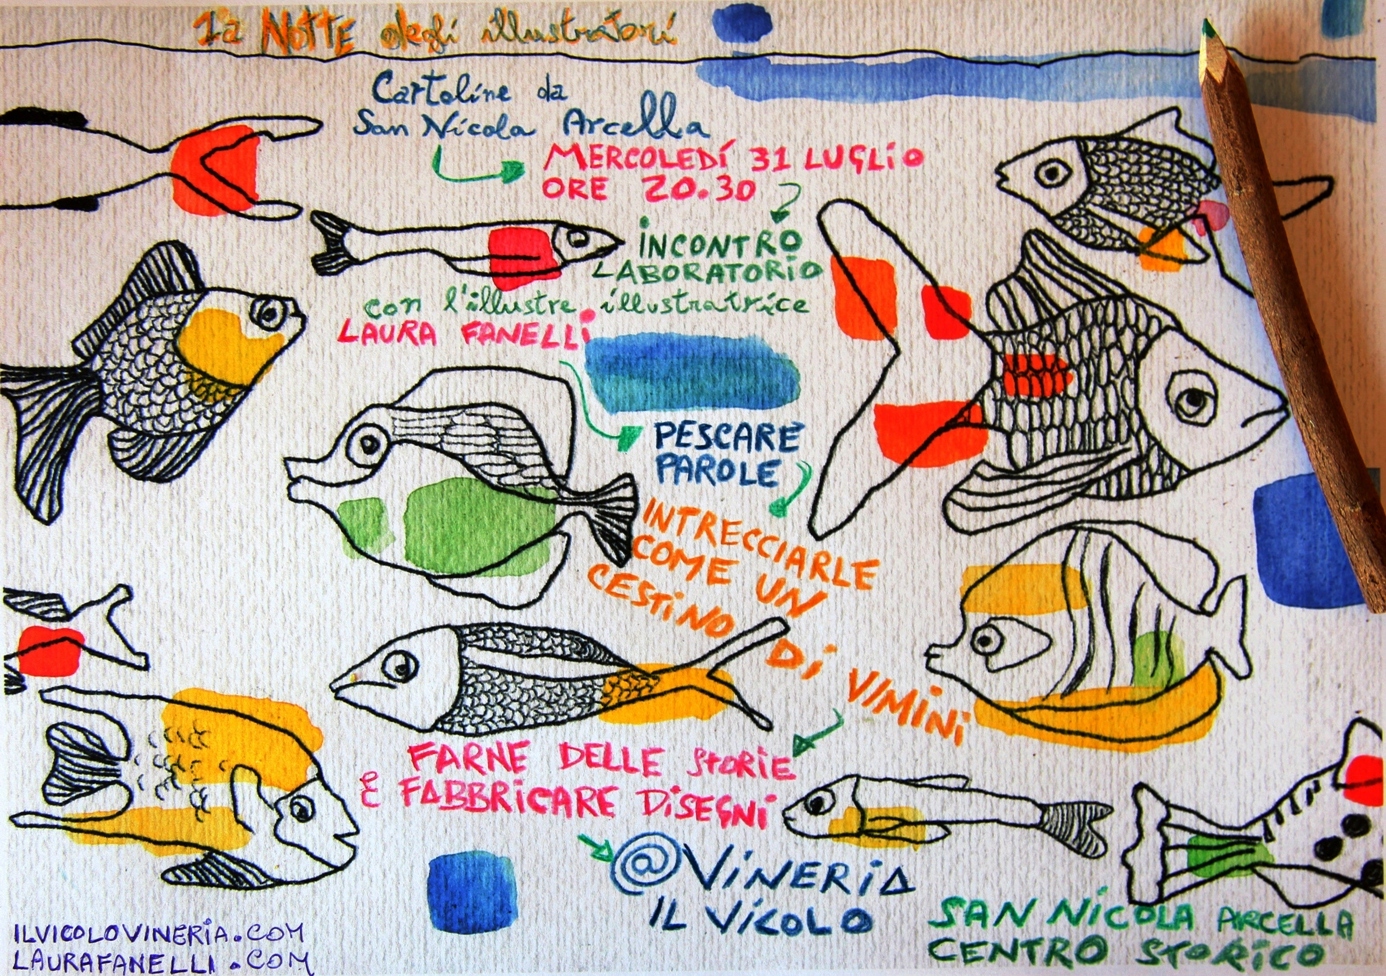 1a NOTTE degli illustratori
Cartoline da
San Nicola Arcella
MERCOLEDÍ 31 LUGLIO
ORE 20.30
INCONTRO
LABORATORIO
con l'illustre illustratrice
LAURA FANELLI
PESCARE
PAROLE
INTRECCIARLE
COME UN
CESTINO DI VIMINI
FARNE DELLE STORIE
E FABBRICARE DISEGNI
@VINERIA
IL VICOLO
SAN NICOLA ARCELLA
CENTRO STORICO
ILVICOLOVINERIA.COM
LAURAFANELLI.COM